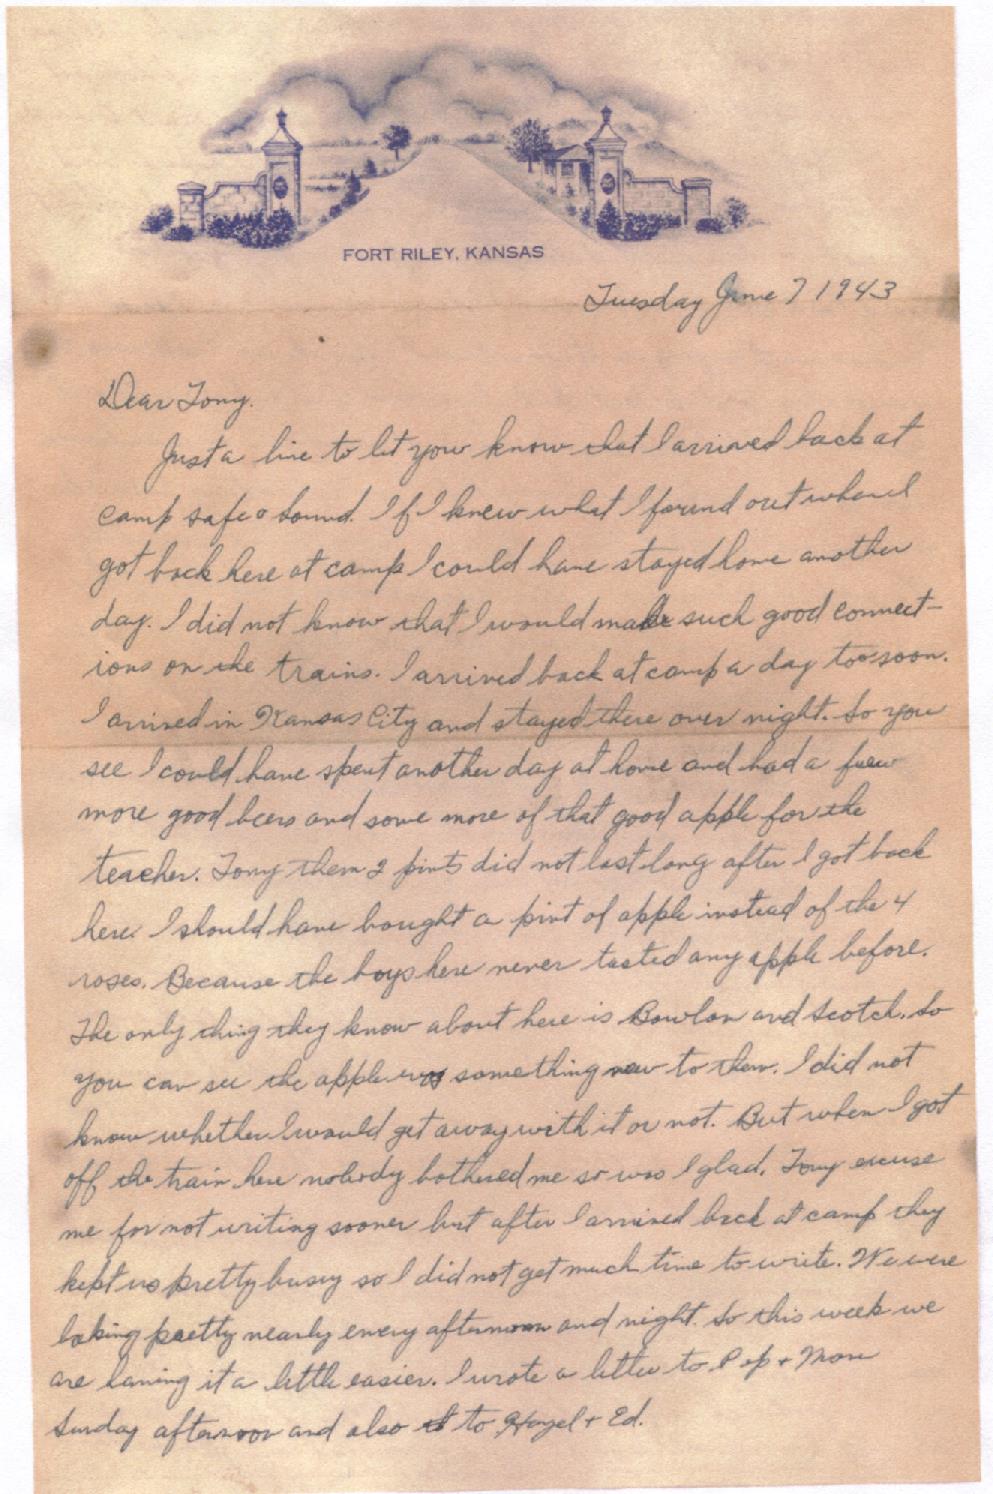 FORT RILEY, KANSAS
Tuesday June 7 1943
Dear Tony.
Just a line to let you know that I arrived back at
camp safe & sound. If I knew what I found out when I
got back here at camp I could have stayed home another
day. I did not know that I would make such good connect-
ions on the trains. I arrived back at camp a day too soon.
I arrived in Kansas City and stayed there over night. So you
see I could have spent another day at home and had a few
more good beers and some more of that good apple for the
teacher. Tony them 2 pints did not last long after I got back
here. I should have bought a pint of apple instead of the 4
roses. Because the boys here never tasted any apple before.
The only thing they know about here is Bowlon and Scotch. So
you can see the apple was something new to them. I did not
know whether I would get away with it or not. But when I got
off the train here nobody bothered me so was I glad. Tony excuse
me for not writing sooner but after I arrived back at camp they
kept us pretty busy so I did not get much time to write. We were
baking pretty nearly every afternoon and night. So this week we
are having it a little easier. I wrote a letter to Pop + Mom
Sunday afternoon and also to Hazel + Ed.